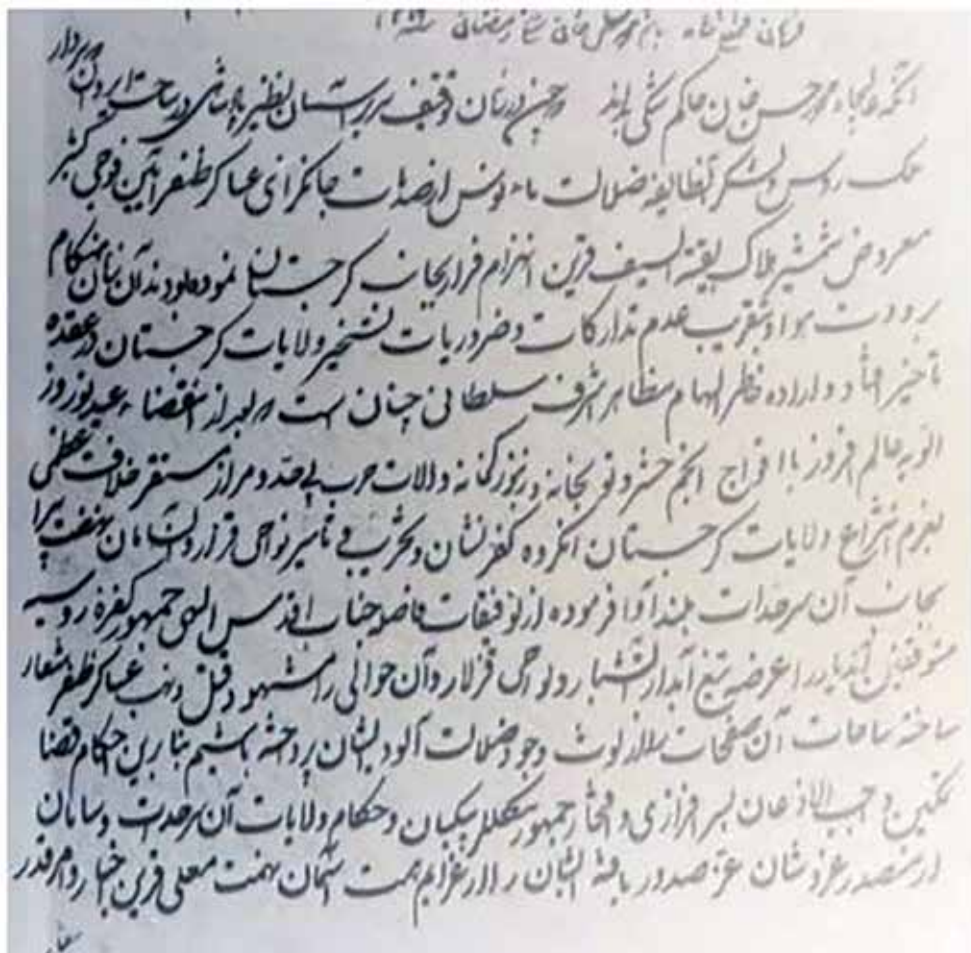 فرمان فتحعلی شاه بنام محمد حسن خان شیخ رمضان
آنکه عالیجاه محمد حسن خان حاکم شکی بداند در حین زمان توقیف سرر آسمان نظیر پادشاهی در ساحت ایروان سردار
روس و لشکر آنطایفه ضلالت مأنوس از صدمات جانگزای عساکر ظفر آئین فوجی کثیر
معروض شمشیر هلاک بقیة السیف قرین انهزام فرار بجانب گرجستان نموده بودند آن زمان هنگام
برودت هوا و بتقریب عدم تدارکات و ضروریات تسخیر ولایات گرجستان در عقده
تأخیر افتاد و اراده نظر الهام مظاهر اشرف سلطانی چنان است که بعد از انقضاء عید نوروز
عالم افروز با افواج انجم حشر و توپخانه و زنبورکخانه و آلات حرب بیحد و مر از مستقر خلافت عظمی
بعزم انتزاع ولایات گرجستان آنگروه کفر نشان و تخریب نواحی قزلر و نهضت پیرا
بجانب آن سرحدات فرموده از توفیقات جناب اقدس الهی جمهور کفره روسیه
متوقفین را عرضه تیغ آبدار آتشبار و نواحی قزلار و آن حوالی را مشهود قتل و نهب عساکر ظفر شعار
ساخته ساحات آن صفحات را از لوث وجود ضلالت آلود ایشان پرداخته باشیم بنابرین احکام قضا
تمکین واجب الاذعان بسرافرازی و افتخار جمهور بیگلربیگیان و حکام ولایات آن سرحدات و سامان
از مصدر عز و شان عز صدور یافته ایشان را از عزایم همت آسمان نهمت معلی قرین اخبار و امر قدر